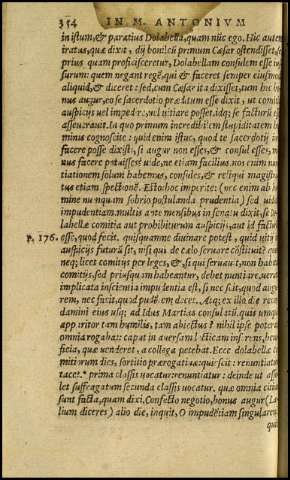 354 IN M. ANTONIVM
in istum, & paratius Dolabella, quam nūc ego. Hic autem
iratus, quæ dixit, dij boni! cū primum Cæsar ostendisset, se
prius quam proficisceretur, Dolabellam consulem esse ius
surum: quem negant regē, qui & faceret semper eiusmodi
aliquid, & diceret: sed, cum Cæsar ita dixisset, tum hic bo
nus augur, eo se sacerdotio præditum esse dixit, ut comitia
auspicijs uel impedire, uel uitiare posset, idq; se facturū esse
asseuerauit. In quo primum incredibilem stupiditatem ho
minis cognoscite: quid enim istuc, quod te sacerdotij iure
facere posse dixisti, si augur non esses, & consul esses, mi
nus facere potuisses? uide, ne etiam facilius. nos enim nun
tiationem solum habemus, consules, & reliqui magistra
tus etiam spectionē. Esto: hoc imperite: (nec enim ab ho
mine nunquam sobrio postulanda prudentia) sed uidete
impudentiam. multis ante mensibus in senatu dixit, se Do
labellæ comitia aut prohibiturum auspicijs, aut id facturum
P. 176. esse, quod fecit. quisquamne diuinare potest, quid uitij in
auspicijs futurū sit, nisi qui de cælo seruare constituit? quod
neq; licet comitijs per leges, & si qui seruauit, non habitis
comitijs, sed priusquam habeantur, debet nuntiare. uerum
implicata inscientia impudentia est, si nec scit, quod augu
rem, nec facit, quod pudētem decet. Atq; ex illo die recor
damini eius usq; ad Idus Martias consulatū. quis unquam
apparitor tam humilis, tam abiectus? nihil ipse poterat:
omnia rogabat: caput in auersam lecticam inserens, bene
ficia, quæ uenderet, a collega petebat. Ecce Dolabellæ co
mitiorum dies, sortitio prærogatiuæ: quiescit: renuntiatur:
tacet. * prima classis uocatur: renuntiatur: deinde ut asso
let suffragatum secunda classis uocatur. quæ omnia citius
sunt facta, quam dixi. Confecto negotio, bonus augur (Læ
lium diceres) alio die, inquit. O impudētiam singularem:
quid